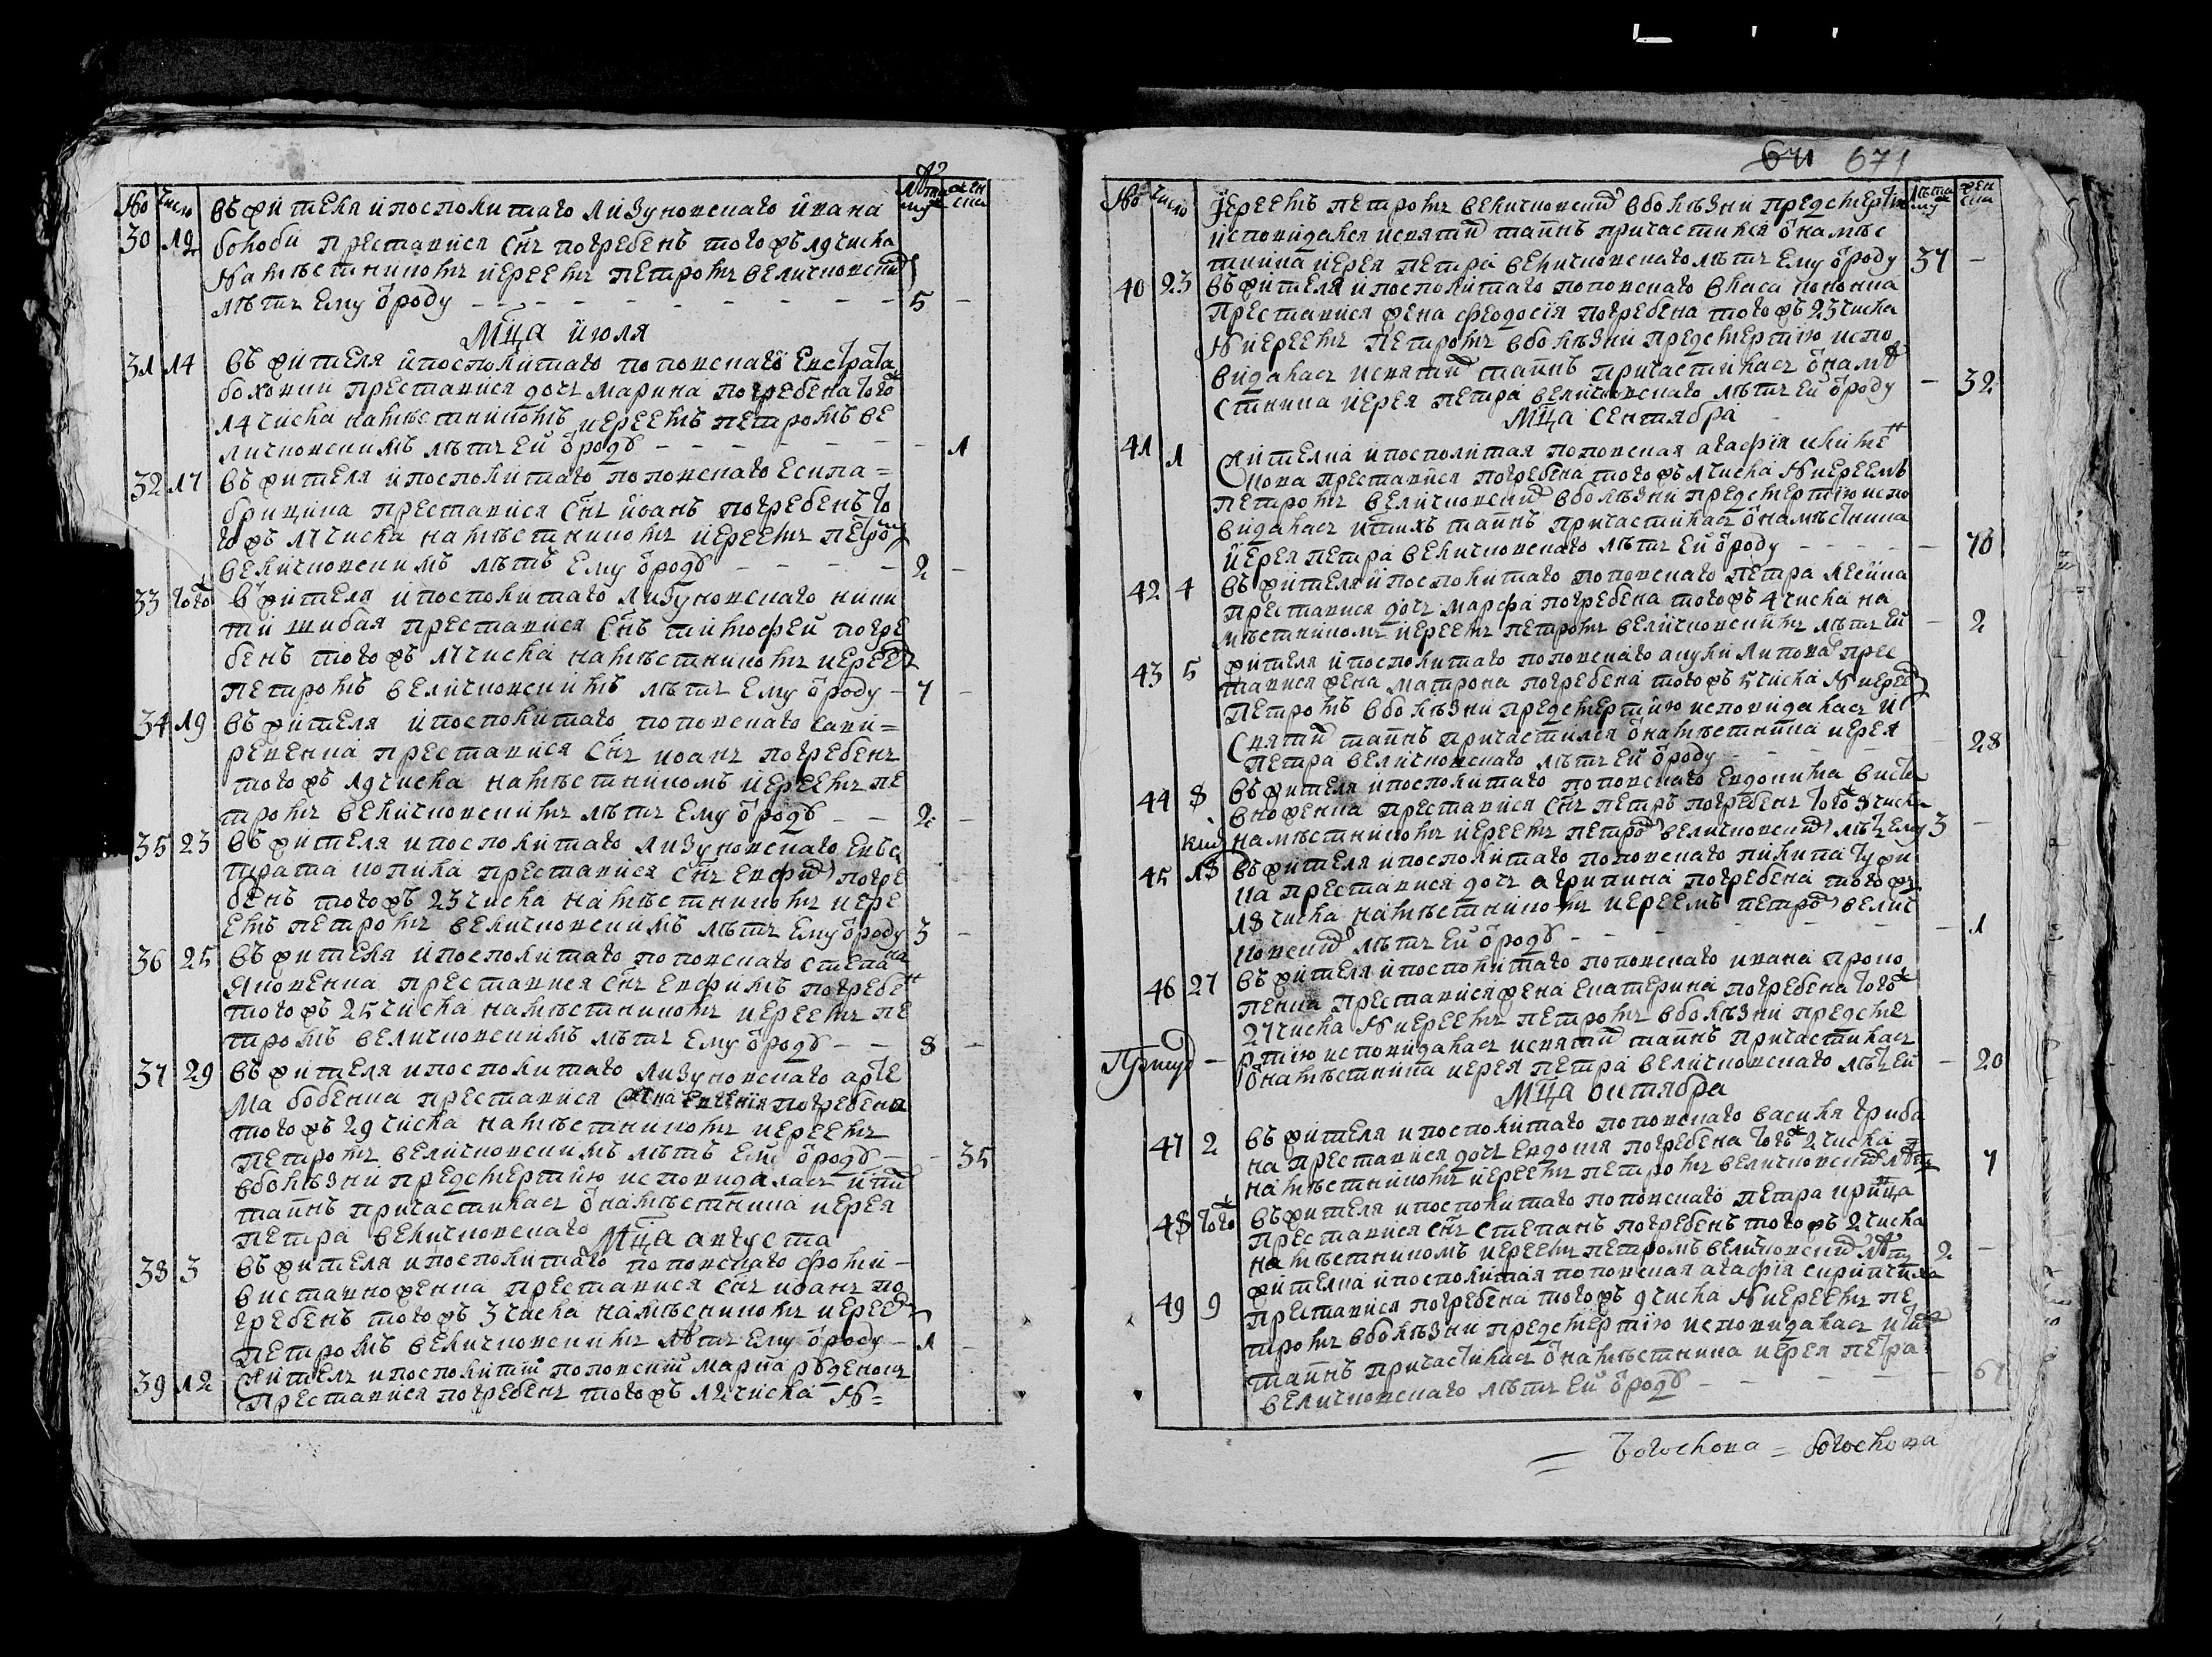 № число лѣта муж жен ска
30 19 въ жителя и посполитаго лизуновскаго ивана
бокоби преставися снъ погребенъ тогожъ 19 числа
намѣстникомъ иереемъ петромъ величковским
лѣтъ ему ѿроду 5 –
Мца июля
31 14 въ жителя и посполитаго поповскаго евстрата
боховки преставися дочь марина погребена тогож
14 числа намѣстникомъ иереемъ петромъ ве
личковскимъ лѣтъ ей ѿроду – 1
32 17 въ жителя и посполитаго поповскаго есипа
брицина преставися снъ иоанъ погребенъ то
гожъ 17 числа намѣстникомъ иереемъ петром
величковскимъ лѣтъ ему ѿроду 2 –
33 тогож в жителя и посполитаго лизуновскаго ники
ти шибая преставися снъ тимофей погре
бенъ тогожъ 17 числа намѣстникомъ иереем
петромъ величковскимъ лѣтъ ему ѿроду 7 –
34 19 въ жителя и посполитаго поповскаго сави
ревенка преставися снъ иоанъ погребенъ
тогожъ 19 числа намѣстникомъ иереемъ пе
тромъ величковскимъ лѣтъ ему ѿроду 2 –
35 23 въ жителя и посполитаго лизуновскаго евъс
трата копика преставися снъ евфим погре
бенъ тогожъ 23 числа намѣстникомъ иере
емъ петромъ величковскимъ лѣтъ ему ѿроду 3 –
36 25 въ жителя и посполитаго поповскаго степана
яковенка преставися снъ евфимъ погребен
тогожъ 25 числа намѣстникомъ иереемъ пе
тромъ величковскимъ лѣтъ ему ѿроду 8 –
37 29 въ жителя и посполитаго лизуновскаго арте
ма бобенка преставися жена погребена
тогожъ 29 числа намѣстникомъ иереемъ
петромъ величковскимъ лѣтъ ей ѿроду – 35
вболѣзни предсмертию исповидалась и
таинъ причастилась ѿнамѣстника иерея
петра величковскаго
Мца августа
38 3 въ жителя и посполитаго поповскаго фоми
виставноженка преставися снъ иоанъ по
гребенъ тогожъ 3 числа намѣсникомъ иереем
петромъ величковскимъ лѣтъ ему ѿроду 1 –
39 12 житель и посполитий поповский марка руденокъ
преставися погребенъ тогожъ 12 числа н
671 671
№ число лѣта муж жен ска
иереемъ петромъ величковским вболѣзни предсмертию
исповидался исвятих таинъ причастился ѿнамѣс
тника иерея петра величковскаго лѣтъ ему ѿроду 37 –
40 23 въ жителя и посполитаго поповскаго власа кононка
преставися жена феодосiя погребена тогожъ 23 числа
н иереемъ петромъ вболѣзни предсмертию испо
видалась исвятих таинъ причастилась ѿнамѣ
стника иерея петра величковскаго лѣтъ ей ѿроду – 32
Мца сентября
41 1 жителка и посполитая поповская агафiя климен
кова преставися погребена тогожъ 1 числа н иереемъ
петромъ величковским вболѣзни предсмертию испо
видалась итихъ таинъ причастилась ѿнамѣстника
иерея петра величковскаго лѣтъ ей ѿроду – 70
42 4 въ жителя и посполитаго поповскаго петра лесика
преставися дочь марфа погребена тогожъ 4 числа на
мѣстникомъ иереемъ петромъ величковскимъ лѣтъ ей – 2
43 5 жителя и посполитаго поповскаго луки липова прес
тавися жена матрона погребена тогожъ 5 числа н иереем
петромъ вболѣзни предсмертию исповидалась и
святих таинъ причастился ѿнамѣстника иерея
петра величковскаго лѣтъ ей ѿроду – 28
44 8 въ жителя и посполитаго поповскаго евдокима виста
вноженка преставися снъ петръ погребенъ тогож 8 числа
намѣстникомъ иереемъ петром величковским лѣтъ ему 3 –
45 18 въ жителя и посполитаго поповскаго
ка преставися дочь агрипина погребена тогожъ
18 числа намѣстникомъ иереемъ петром велич
ковским лѣтъ ей ѿроду – 1
46 27 въ жителя и посполитаго поповскаго ивана проко
пенка преставися жена екатерина погребена тогож
27 числа н иереемъ петромъ вболѣзни предсме
ртию исповидалась исвятих таинъ причастилась
ѿнамѣстника иерея петра величковскаго лѣтъ ей – 20
Мца октября
47 2 въ жителя и посполитаго поповскаго василя гриба
на преставися дочь евдокия погребена тогож 2 числа
намѣстникомъ иереемъ петромъ величковским лѣтъ 7
48 тогож въ жителя и посполитаго поповскаго петра
преставися снъ степанъ погребенъ тогожъ 2 числа
намѣстникомъ иереемъ петромъ величковским лѣтъ 2 –
49 9 жителка и посполитая поповская агафiя
преставися погребена тогожъ 9 числа н иереемъ пе
тромъ вболѣзни предсмертию исповидалась и
таинъ причастилась ѿнамѣстника иерея петра
величковскаго лѣтъ ей ѿроду –